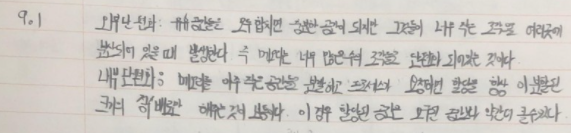 9.1 외부단편화: 유휴공간들을 모두 합치면 충분한 공간이 되지만 그것들이 너무 작은 조각들로 여러곳에
분산되어 있을 때 발생한다. 즉 메모리는 너무 많은수의 조각들로 단편화 되어있는 것이다.
내부단편화: 메모리를 아주 작은 공간들로 분할하고 프로세스가 요청하면 할당을 항상 이 분할된
크기의 정수배로만 해주는 것이 보통이다. 이 경우 할당된 공간은 요구된 공간보다 약간 더 클 수 있다.